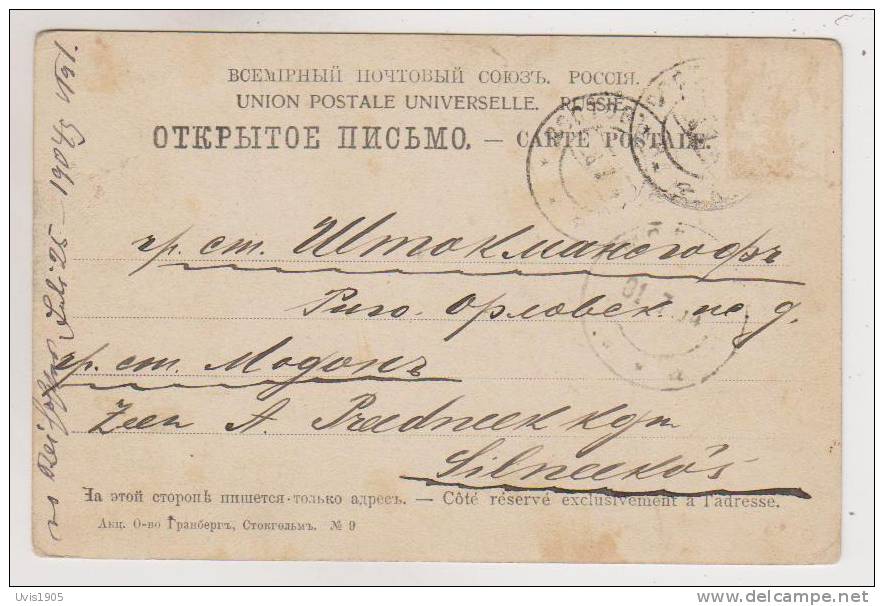 ВСЕМІРНЫЙ ПОЧТОВЫЙ СОЮЗЪ. РОССІЯ.
UNION POSTALE UNIVERSELLE. RUSSIE.
ОТКРЫТОЕ ПИСЬМО. — CARTE POSTALE.
чр. ст. Штокмансгофъ
Риго. Орловск. же. д.
чр. ст. Модонъ
Zeen A. Preedneek kgm
Silneekōs
На этой сторонѣ пишется только адресъ. — Côté réservé exclusivement à l'adresse.
Акц. О-во Гранбергъ, Стокгольмъ. № 9
Juli 25 — 1904
Uvis1905
www.delcampe.net